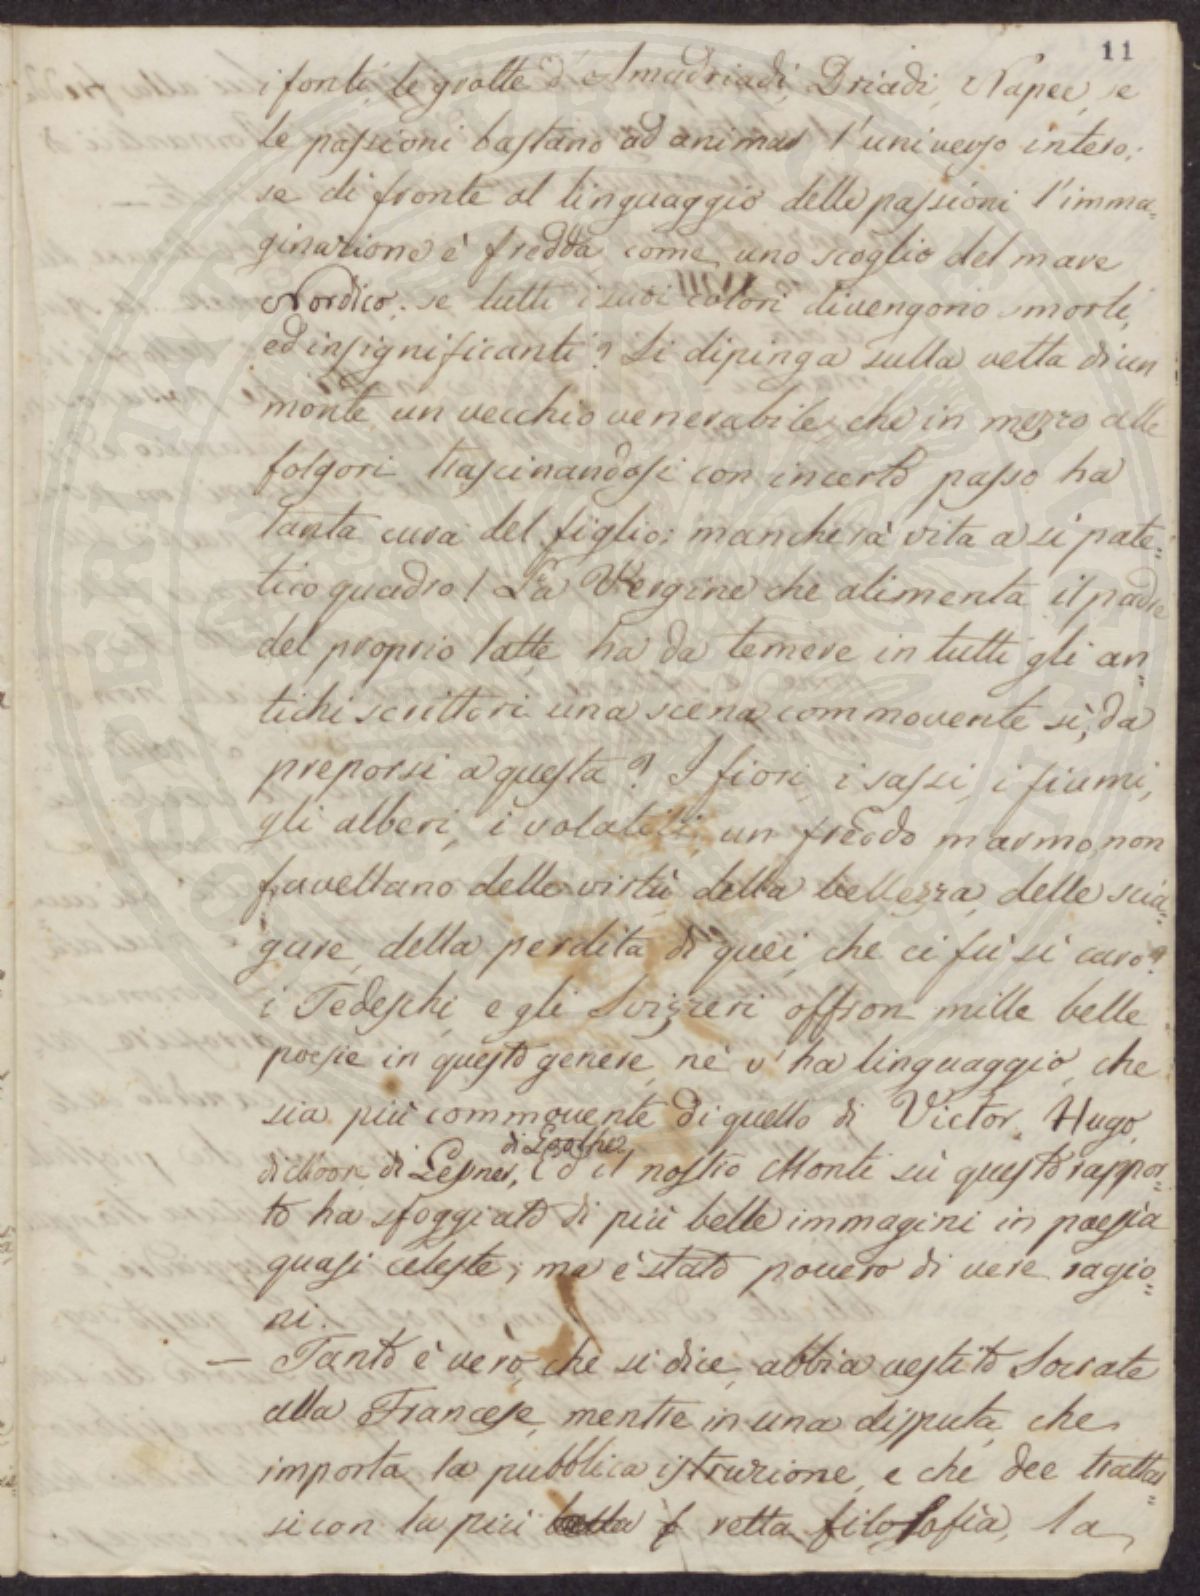 11
i fonti, le grotte d'Amadriadi, Driadi, Napee, se
le passioni bastano ad animar l'universo intero;
se di fronte al linguaggio delle passioni l'imma=
ginazione è fredda, come uno scoglio del mare
Nordico; se tutti i suoi colori divengono smorti,
ed insignificanti? Si dipinga sulla vetta di un
monte un vecchio venerabile, che in mezzo alle
folgori trascinandosi con incerto passo ha
tanta cura del figlio: mancherà vita a sì pate=
tico quadro! La Vergine che alimenta il padre
del proprio latte ha da temere in tutti gli an=
tichi scrittori una scena commovente sì, da
preporsi a questa? I fiori, i sassi, i fiumi,
gli alberi, i volatili, un freddo marmo, non
favellano delle virtù, della bellezza, delle scia=
gure, della perdita di quei, che ci fù sì caro?
i Tedeschi, e gli Svizzeri offron mille belle
poesie in questo genere, nè v'ha linguaggio, che
sia più commovente di quello di Victor, Hugo,
di Goethe
di Moor, di Gesner, Ed il nostro Monti sù questo rappor=
to ha sfoggiato di più belle immagini in poesia
quasi celeste; ma è stato povero di vere ragio=
ni.
— Tanto è vero, che si dice, abbia vestito Socrate
alla Francese, mentre in una disputa, che
importa la pubblica istruzione, e che dee trattar=
si con la più retta filosofia, la